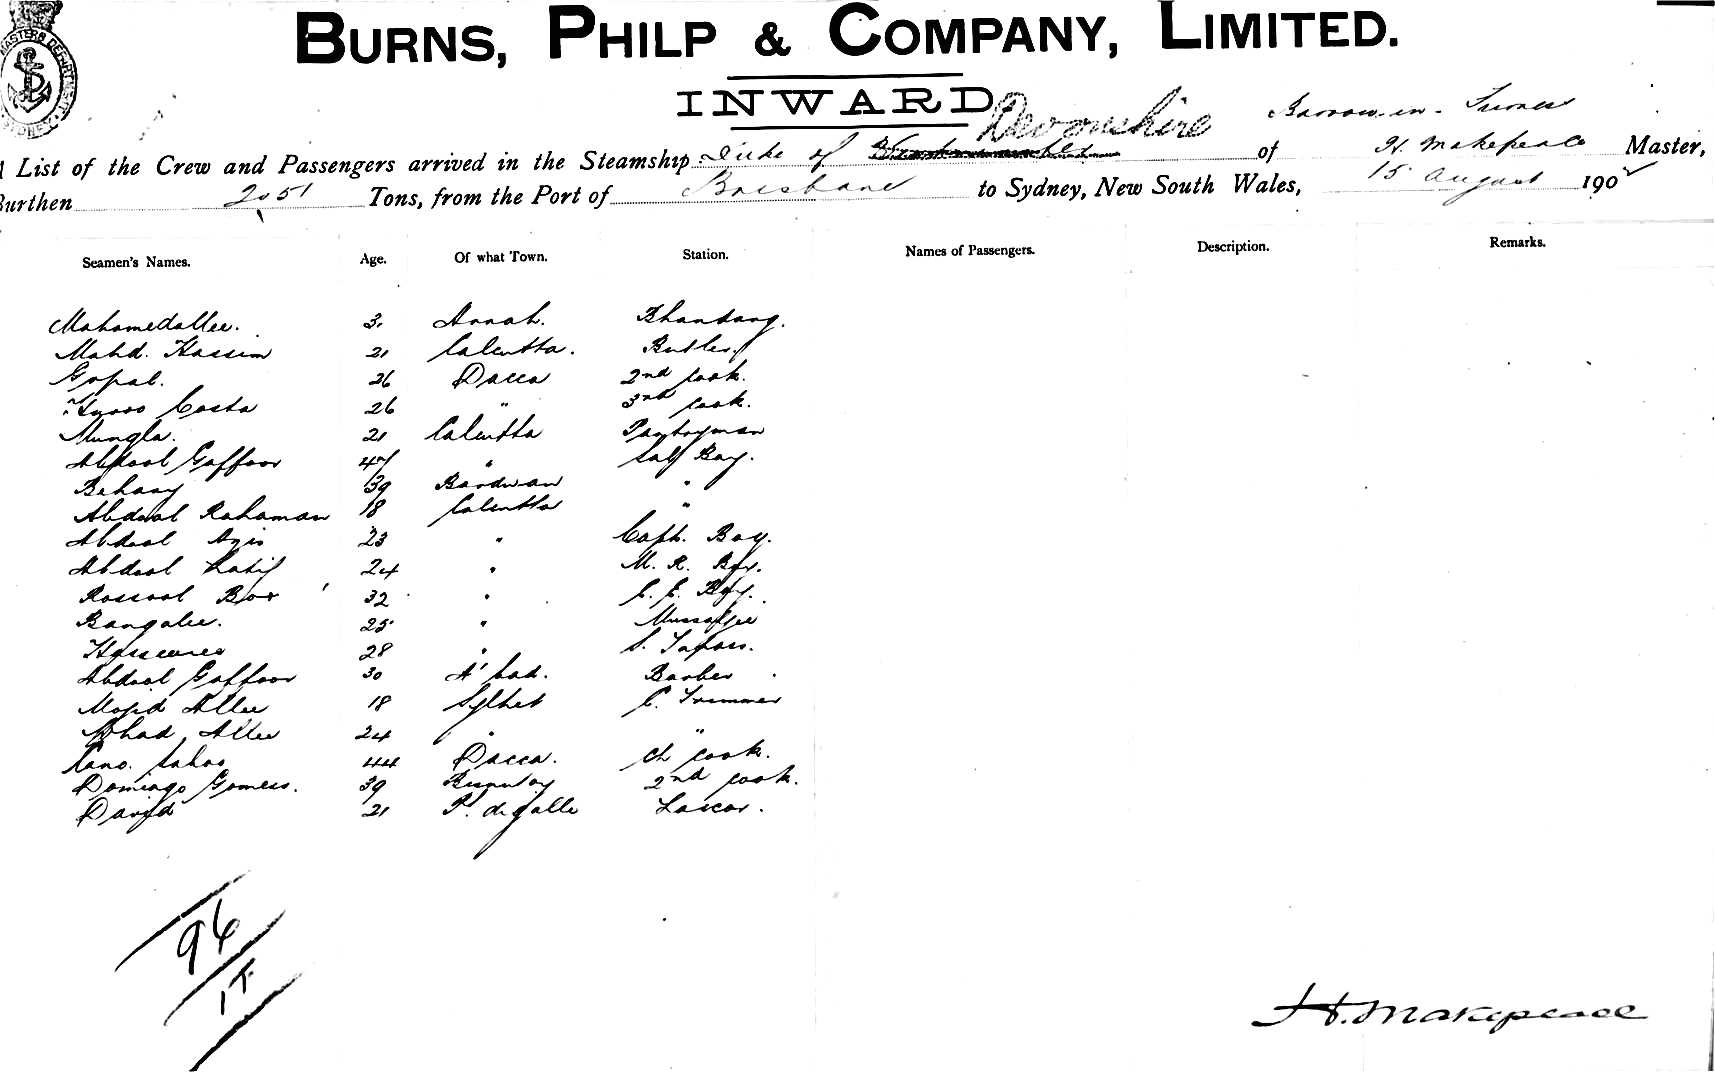 MASTERS DEPARTMENT SYDNEY
BURNS, PHILP & COMPANY, LIMITED.
INWARD
Barrow-in-Furness
List of the Crew and Passengers arrived in the Steamship Duke of Devonshire of H. Makepeace Master,
Burthen 2051 Tons, from the Port of Brisbane to Sydney, New South Wales, 15 August 190
Seamen's Names. Age. Of what Town. Station. Names of Passengers. Description. Remarks.
Mahomedallee. 31 Arrah. Bhandary.
Mahd. Kassim 21 Calcutta. Butler
Gopal. 26 Dacca 2nd Cook.
Costa 26 " 3rd Cook.
Mungla. 21 Calcutta Pantryman
Abdool Gaffoor 47 " Salf Boy.
Behary 39 Bardwan "
Abdool Rahaman 18 Calcutta "
Abdool Azis 23 " Capt. Boy.
Abdool Latif 24 " M. R. Boy.
Rossool Box 32 " C. E. Boy.
Bangalee. 25 "
28 " S. Topass.
Abdool Gaffoor 30 A'bad. Barber
Mojid Allee 18 Sylhet C. Trimmer
Allee 24 " "
44 Dacca. Ch Cook.
Domingo Gomess. 39 2nd Cook.
David 21 P. de galle Lascar.
96
1T
H. Makepeace